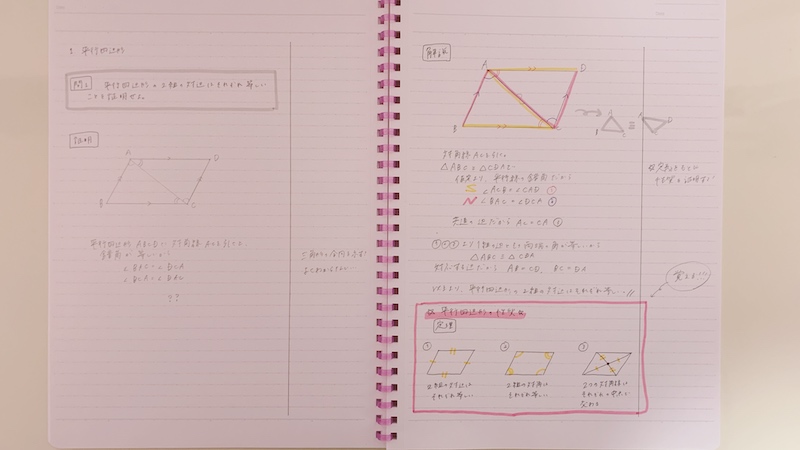 1. 平行四辺形
問1 平行四辺形の2組の対辺はそれぞれ等しい
ことを証明せよ。
証明
A
D
B
C
平行四辺形ABCDに対角線ACを引くと
錯角が等しいから
∠BAC = ∠DCA
∠BCA = ∠DAC
??
解説
A
D
B
C
A
B
C
≡
A
D
対角線ACを引く。
△ABCと△CDAで
仮定より、平行線の錯角だから
∠ACB = ∠CAD ①
∠BAC = ∠DCA ②
共通の辺だから AC = CA ③
①②③より1組の辺とその両端の角が等しいから
△ABC ≡ △CDA
対応する辺だから AB = CD BC = DA
以上より、平行四辺形の2組の対辺はそれぞれ等しい//
覚える!!
平行四辺形の性質
定理
① ② ③
2組の対辺は
それぞれ等しい
2組の対角は
それぞれ等しい
2つの対角線は
それぞれの中点で
交わる